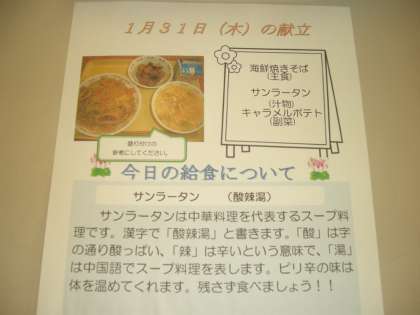 1月31日（木）の献立
海鮮焼きそば
（主食）
サンラータン
（汁物）
キャラメルポテト
（副菜）
盛り付けの
参考にしてください。
今日の給食について
サンラータン　（酸辣湯）
サンラータンは中華料理を代表するスープ料
理です。漢字で「酸辣湯」と書きます。「酸」は字
の通り酸っぱい、「辣」は辛いという意味で、「湯」
は中国語でスープ料理を表します。ピリ辛の味は
体を温めてくれます。残さず食べましょう！！